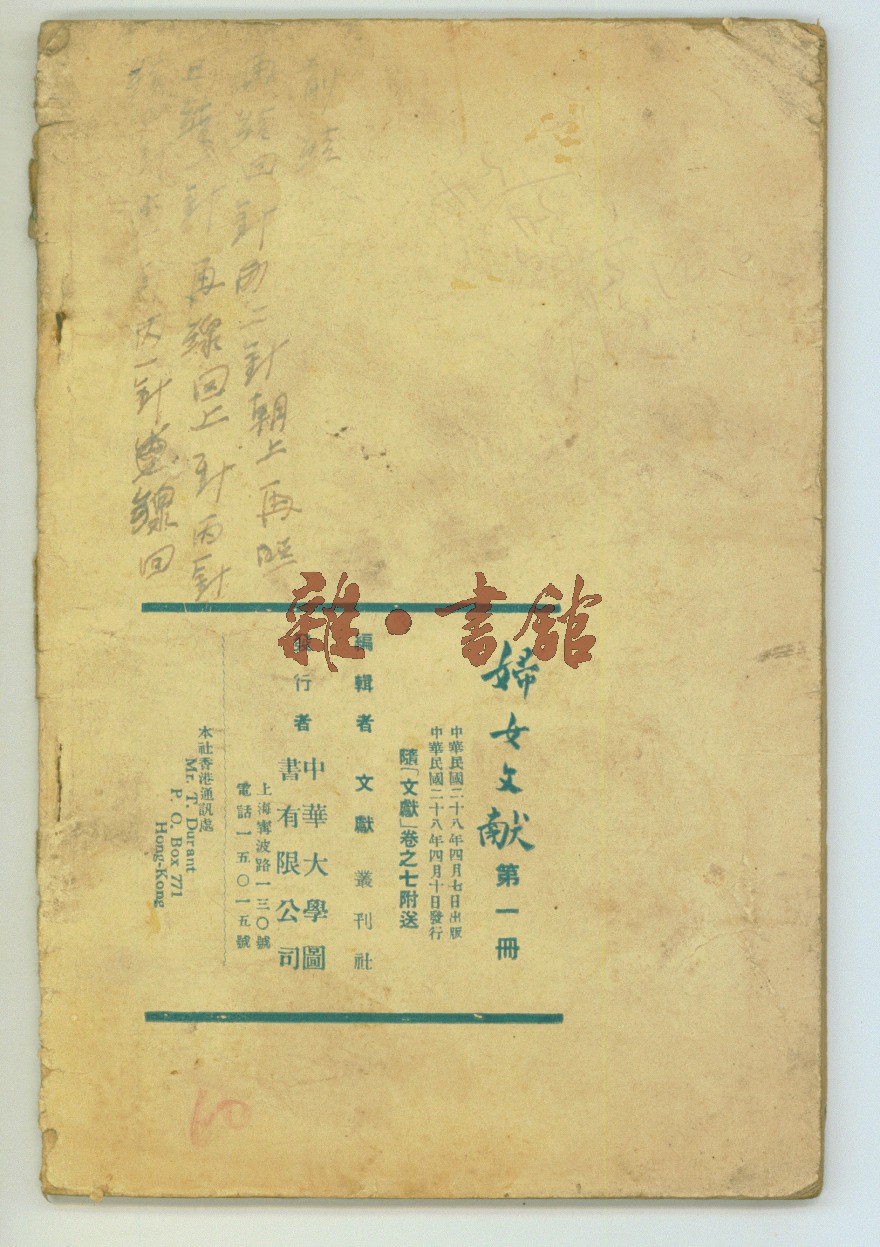 再 回針 二針朝上再
一針再線回上針丙針
丙一針 線回
雜·書館
婦女文献 第一冊
中華民國二十八年四月七日出版
中華民國二十八年四月十日發行
隨「文獻」卷之七附送
編輯者 文獻叢刊社
發行者 中華大學圖
書有限公司
上海寗波路一三〇號
電話一五〇一五號
本社香港通訊處
Mr. T. Durant
P. O. Box 771
Hong-Kong
60